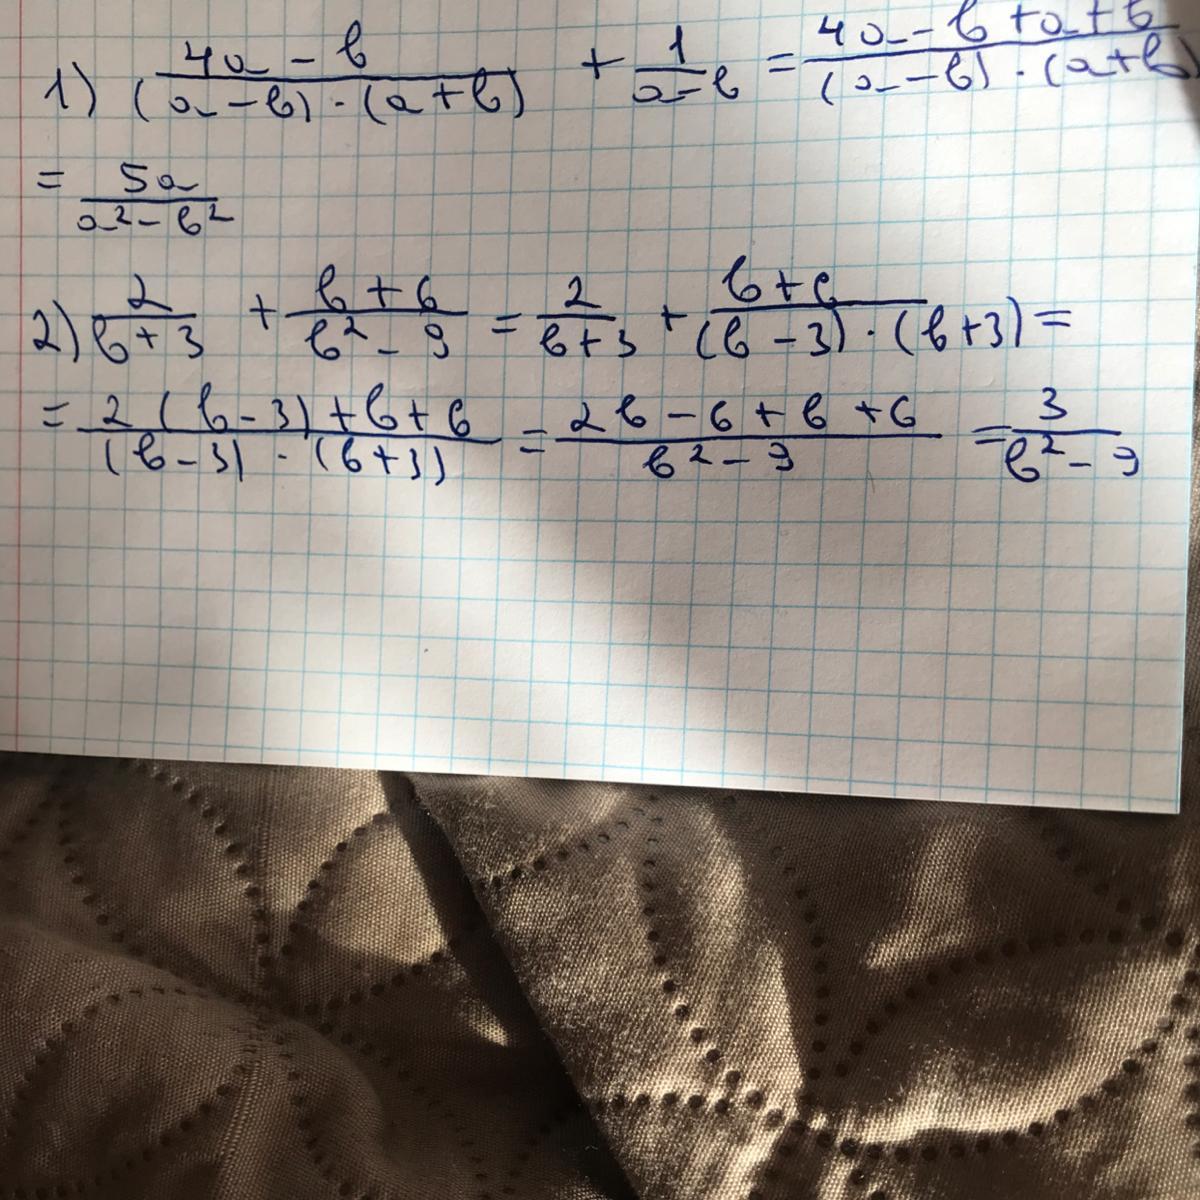 1) (4a - b)/((a - b) · (a + b)) + 1/(a - b) = (4a - b + a + b)/((a - b) · (a + b))
= 5a/(a² - b²)
2) 2/(b + 3) + (b + 6)/(b² - 9) = 2/(b + 3) + (b + 6)/((b - 3) · (b + 3)) =
= (2(b - 3) + b + 6)/((b - 3) · (b + 3)) = (2b - 6 + b + 6)/(b² - 9) = 3/(b² - 9)